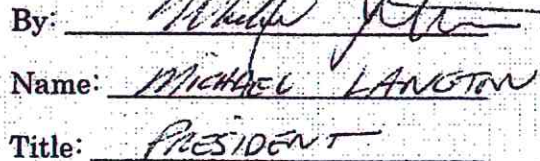 By:
Name: MICHAEL LANGTON
Title: PRESIDENT